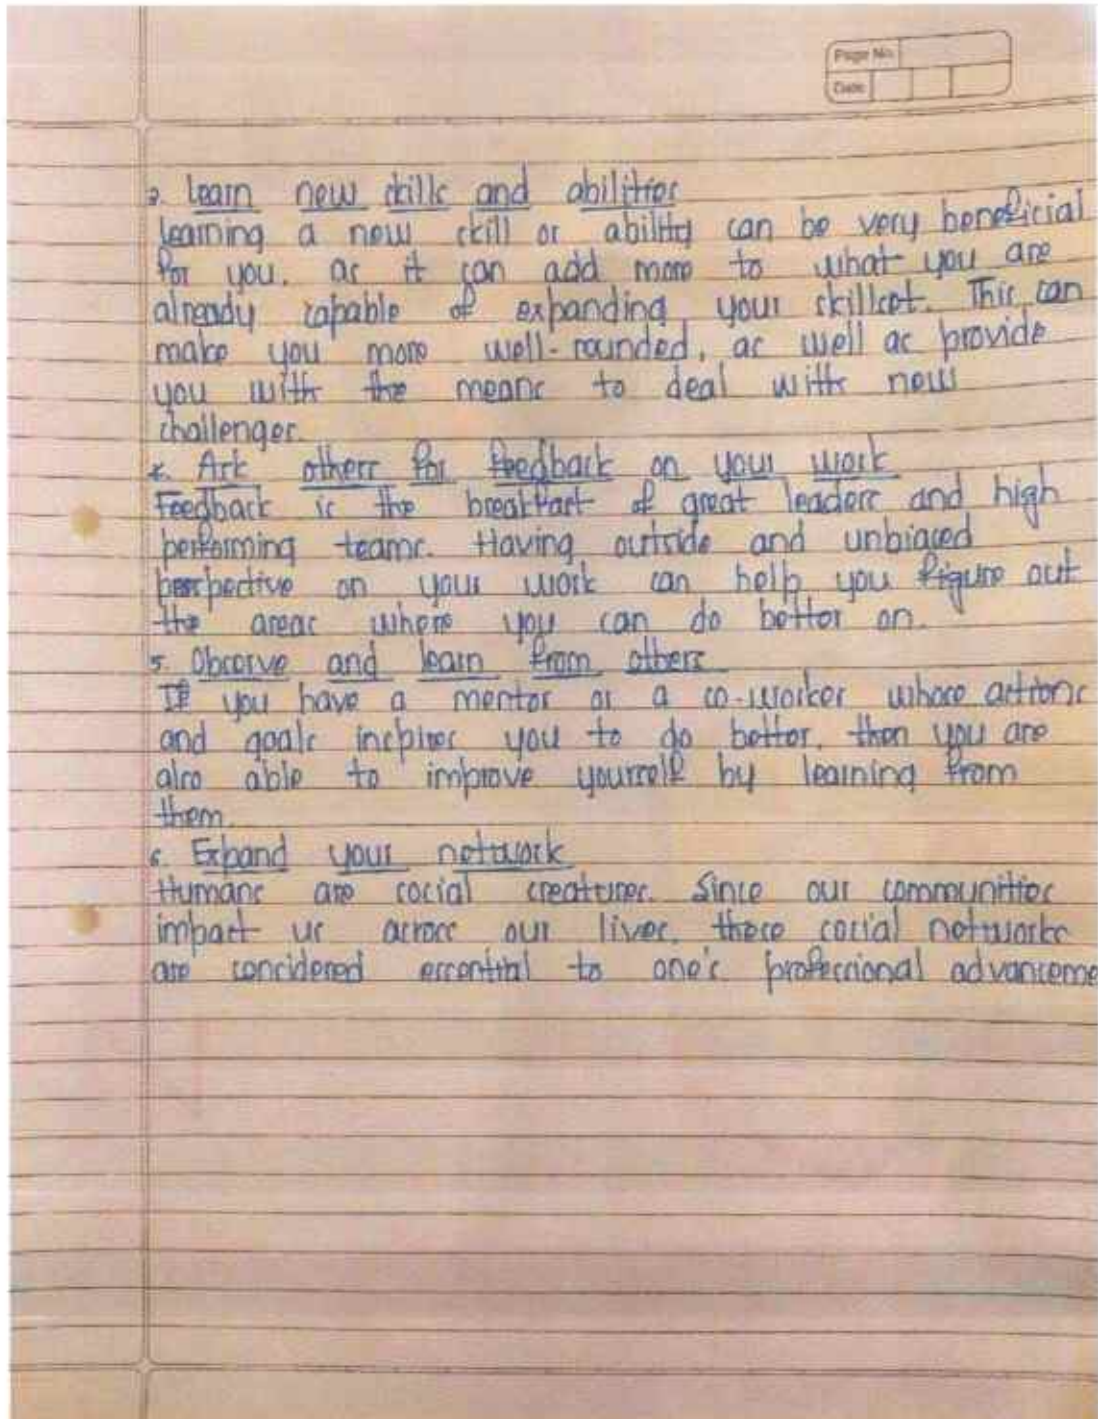 Page No.
Date
3. Learn new skills and abilities
Learning a new skill or ability can be very beneficial
for you, as it can add more to what you are
already capable of expanding your skillset. This can
make you more well-rounded, as well as provide
you with the means to deal with new
challenges.
4. Ask others for feedback on your work
Feedback is the breakfast of great leaders and high
performing teams. Having outside and unbiased
perspective on your work can help you figure out
the areas where you can do better on.
5. Observe and learn from others
If you have a mentor or a co-worker whose actions
and goals inspires you to do better, then you are
also able to improve yourself by learning from
them.
6. Expand your network
Humans are social creatures. Since our communities
impact us across our lives, these social networks
are considered essential to one's professional advanceme